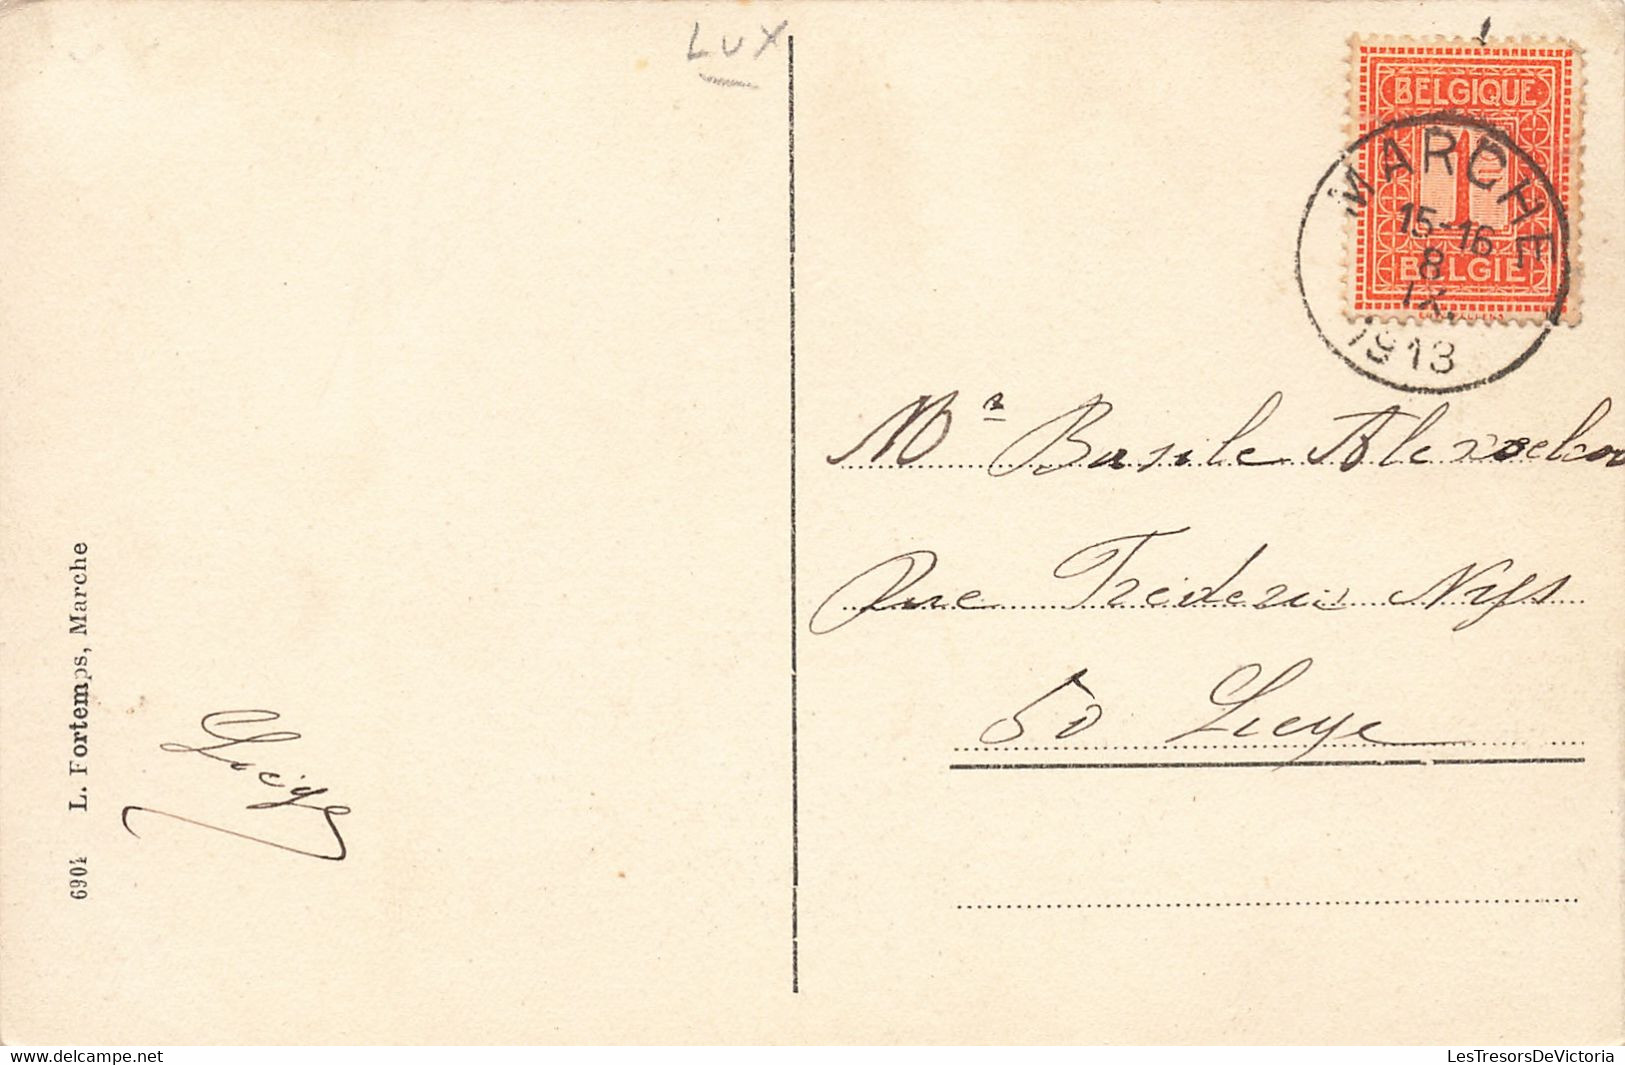 LUX
BELGIQUE
1c
BELGIE
MARCHE
15-16
8
IX.
1913
Mr Basile
Rue Frederic Nyst
50 Liege
Liege
6904 L. Fortemps, Marche
www.delcampe.net
LesTresorsDeVictoria